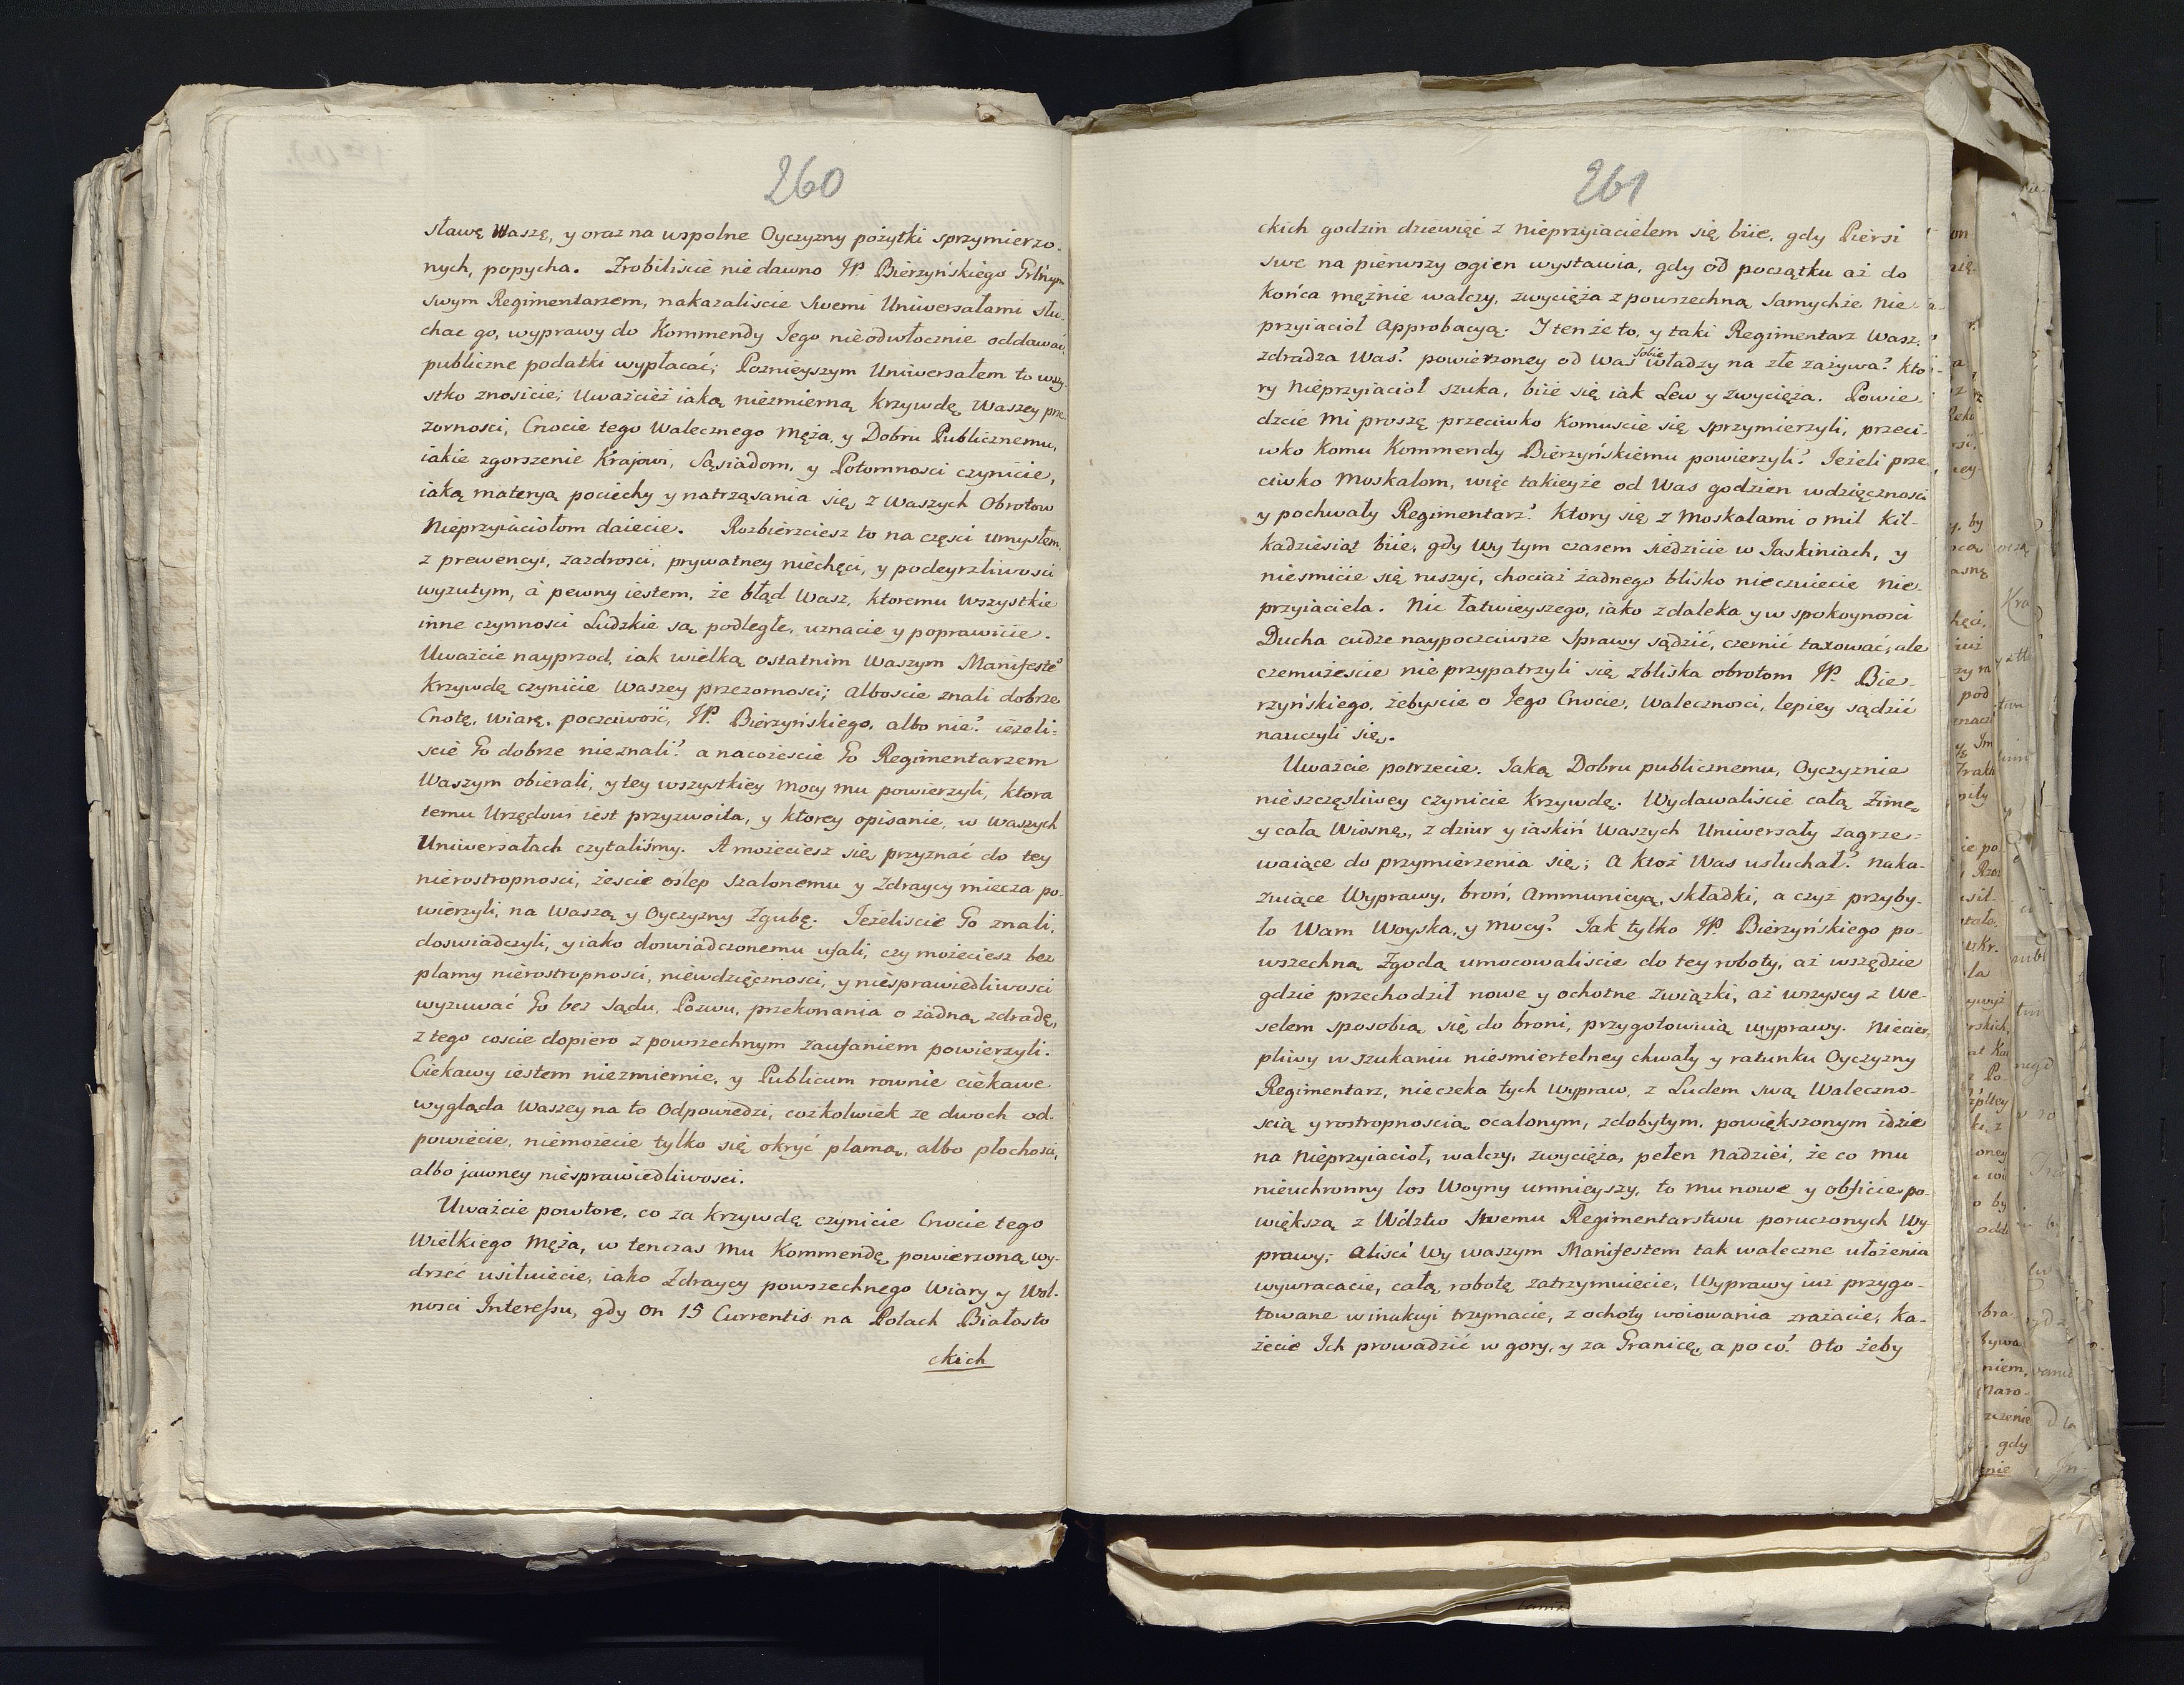 260
sławę Waszę, y oraz na uspolne Oyczyzny pożytki sprzymierzo-
nych, popycha. Zrobiliscie nie dawno JP. Bierzyńskiego Grlnym
swym Regimentarzem, nakazaliscie Swemi Uniwersałami słu-
chac go, wyprawy do Kommendy Jego nieodwłocznie oddawać,
publiczne podatki wypłacać; Poznieyszym Uniwersałem to wszy-
stko znosicie; Uważcież iaką niezmierną krzywdę Waszey prze-
zornosci, Cnocie tego Walecznego Męża, y Dobru Publicznemu,
iakie zgorszenie Krajowi, Sąsiadom, y Potomnosci czynicie,
iaką materyą pociechy y natrząsania się, z Waszych Obrotow
Nieprzyiaciołom daiecie. Rozbierzciesz to na częsci umysłem,
z prewencyi, zazdrosci, prywatney niechęci, y podeyrzliwosci
wyzutym, à pewny iestem, że błąd Wasz, ktoremu wszystkie
inne czynnosci Ludzkie są podległe, uznacie y poprawicie.
Uważcie nayprzod, iak wielką ostatnim Waszym Manifestē
Krzywdę czynicie Waszey przezornosci; Alboscie znali dobrze
Cnotę, Wiarę, poczciwość, JP. Bierzyńskiego, albo nie? ieżeli=
scie Go dobrze nieznali? a nacożescie Go Regimentarzem
Waszym obierali, y tey wszystkiey mocy mu powierzyli, ktora
temu Urzędowi iest przyzwoita, y ktorey opisanie, w Waszych
Uniwersałach czytaliśmy. A możeciesz się przyznać do tey
nierostropnosci, żescie oślep Szalonemu y Zdraycy miecza po-
wierzyli, na Waszą y Oyczyzny Zgubę. Jeżeliscie Go znali,
doswiadczyli, y iako doswiadczonemu ufali, czy możeciesz bez
plamy nierostropnosci, niewdzięcznosci, y niesprawiedliwosci
wyzuwać Go bez Sądu, Pozwu, przekonania o żadną zdradę,
z tego coscie dopiero z powszechnym zaufaniem powierzyli.
Ciekawy iestem niezmiernie, y Publicum rownie ciekawe
wygląda Waszey na to Odpowiedzi, cożkolwiek ze dwoch od-
powiecie, niemożecie tylko się okryć plamą, albo płochosci,
albo jawney niesprawiedliwosci.
Uważcie powtore, co za krzywdę czynicie Cnocie tego
Wielkiego Męża, w tenczas mu Kommendę powierzoną wy-
drzeć usiłuiecie, iako Zdraycy powszechnego Wiary y Wol-
nosci Interessu, gdy On 15 Currentis na Polach Białosto
ckich
261
ckich godzin dziewięć z nieprzyiacielem się biie, gdy Piersi
swe na pierwszy ogien wystawia, gdy od początku aż do
końca mężnie walczy, zwycięża z powszechną Samychże Nie
przyiacioł Approbacyą. I tenże to, y taki Regimentarz Wasz,
zdradza Was? powierzoney od Was sobie władzy na złe zażywa? kto-
ry Nieprzyiacioł szuka, biie się iak Lew y zwycięża. Powie
dzcie mi proszę przeciwko Komuscie się sprzymierzyli, przeci-
wko Komu Kommendy Bierzyńskiemu powierzyli? Jeżeli prze
ciwko Moskalom, więc takieyże od Was godzien wdzięcznosci
y pochwały Regimentarz? Ktory się z Moskalami o mil kil-
kadziesiąt biie, gdy Wy tym czasem siedzicie w Jaskiniach, y
niesmicie się ruszyć, chociaż żadnego blisko nieczuiecie Nie-
przyiaciela. Nic łatwieyszego, iako zdaleka y w spokoynosci
Ducha cudze naypoczciwsze Sprawy sądzić, czernić taxować, ale
czemużescie nieprzypatrzyli się zbliska obrotom JP. Bie-
rzyńskiego, żebyscie o Jego Cnocie, Walecznosci, lepiey sądzić
nauczyli się.
Uważcie potrzecie. Jaką Dobru publicznemu, Oyczyznie
nieszczęsliwey czynicie krzywdę. Wydawaliscie całą Zimę
y całą Wiosnę, z dziur y iaskiń Waszych Uniwersały zagrze-
waiące do przymierzenia się; A ktoż Was usłuchał? Naka-
zuiące Wyprawy, broń, Ammunicyą, składki, a czyż przyby-
ło Wam Woyska, y mocy? Jak tylko JP. Bierzyńskiego po-
wszechną Zgodą umocowaliscie do tey roboty, aż wszędzie
gdzie przechodził nowe y ochotne związki, aż wszyscy z We-
selem sposobią się do broni, przygotowuią wyprawy. Niecier-
pliwy w szukaniu niesmiertelney chwały y ratunku Oyczyzny
Regimentarz, nieczeka tych Wypraw, z Ludem swą Waleczno-
scią y rostropnoscią ocalonym, zdobytym, powiększonym idzie
na Nieprzyiacioł, walczy, zwycięża, pełen Nadziei, że co mu
nieuchronny los Woyny umnieyszy, to mu nowe y obficie po-
większą z Wdztw Swemu Regimentarstwu poruczonych Wy-
prawy; Alisci Wy waszym Manifestem tak waleczne ułożenia
wywracacie, całą robotę zatrzymuiecie, Wyprawy iuż przygo-
towane w inakcyi trzymacie, z ochoty woiowania zrażacie, Ka-
żecie Ich prowadzić w gory, y za Granicę, a po co? Oto żeby